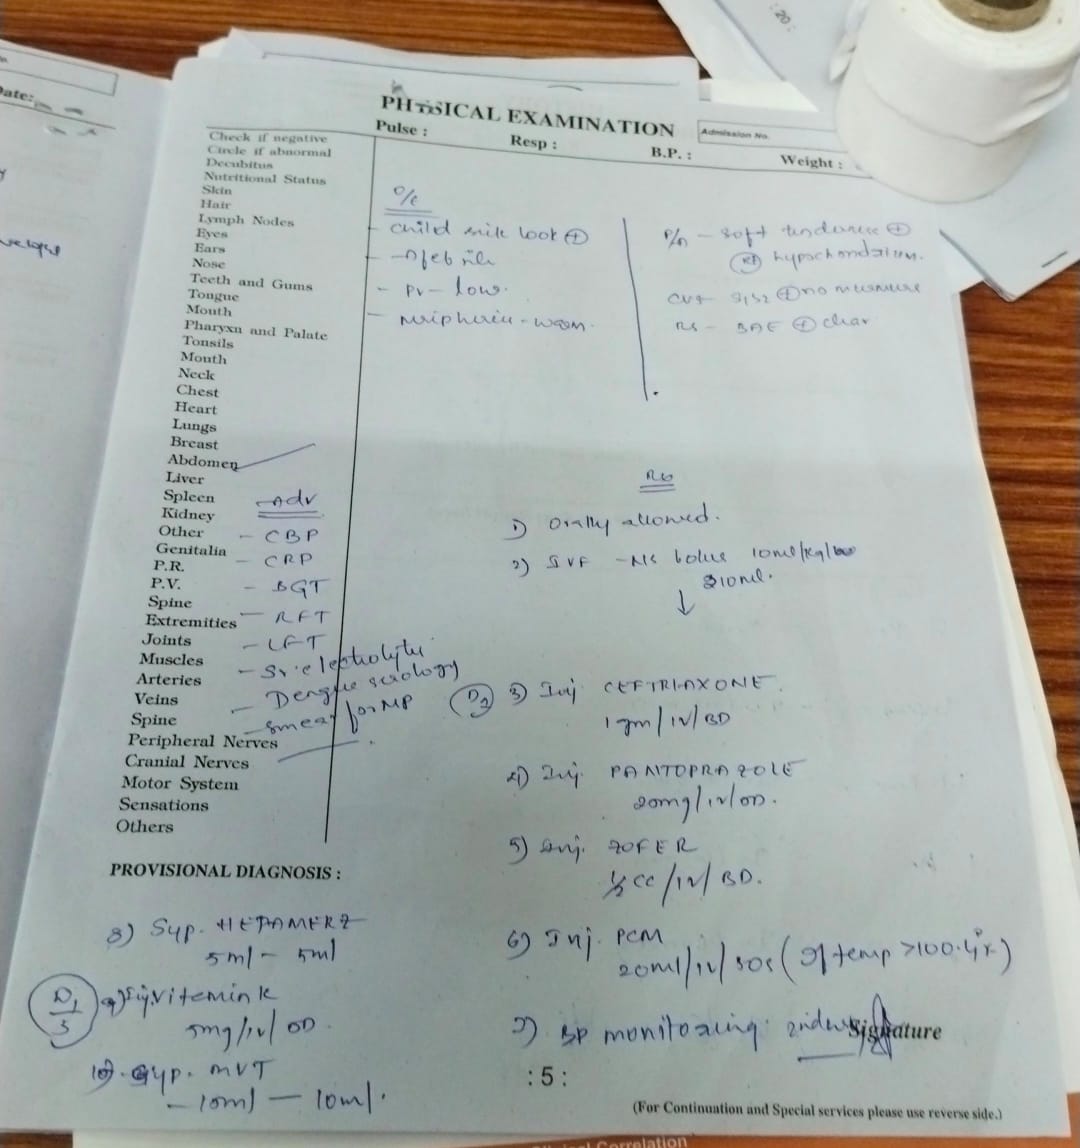 Date:
: 20 :
PHYSICAL EXAMINATION
Admission No.
Pulse :
Resp :
B.P. :
Weight :
Check if negative
Circle if abnormal
Decubitus
Nutritional Status
Skin
Hair
Lymph Nodes
Eyes
Ears
Nose
Teeth and Gums
Tongue
Mouth
Pharyxn and Palate
Tonsils
Mouth
Neck
Chest
Heart
Lungs
Breast
Abdomen
Liver
Spleen
Kidney
Other
Genitalia
P.R.
P.V.
Spine
Extremities
Joints
Muscles
Arteries
Veins
Spine
Peripheral Nerves
Cranial Nerves
Motor System
Sensations
Others
O/E
- child look +
- Afebrile
- PV - low.
- warm.
P/A - soft tenderness +
Rt hypochondrium.
CVS S1S2 + no murmure
RS - BAE + clear
Adv
- CBP
- CRP
- BGT
- RFT
- LFT
- Sr. electrolyte
- Dengue serology
- smear for MP
Rx
1) Orally allowed.
2) IVF - NS bolus 10ml/kg
310ml.
↓
3) Inj CEFTRIAXONE.
1gm/IV/BD
4) Inj. PANTOPRAZOLE
20mg/IV/OD.
5) Inj. ZOFER
½cc/IV/BD.
6) Inj. PCM
20ml/IV/SOS (If temp >100.4°F)
7) BP monitoring
Signature
PROVISIONAL DIAGNOSIS :
8) Syp. HEPAMERZ
5ml - 5ml
D1/3 9) Inj. Vitamin K
5mg/IV/OD.
10) Syp. MVT
- 10ml - 10ml.
: 5 :
(For Continuation and Special services please use reverse side.)
Clinical Correlation